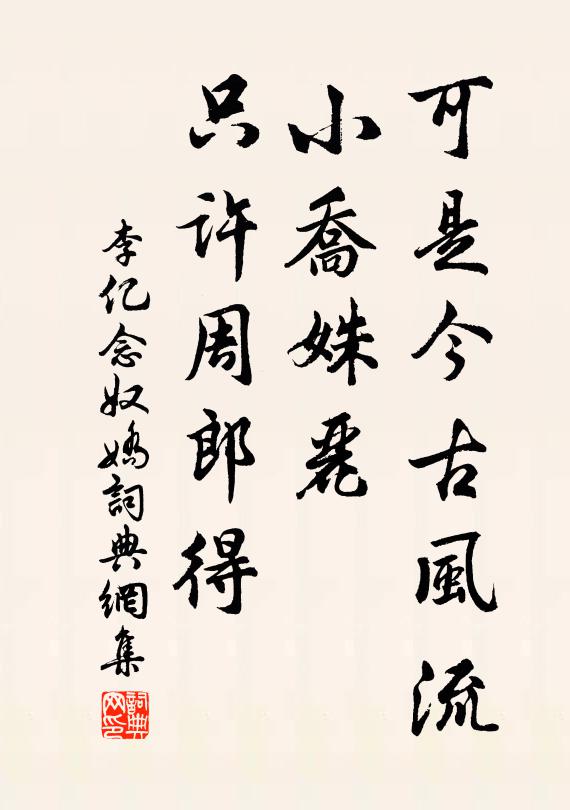 可是今古風流
小喬姝麗
只許周郎得
李亿念奴嬌詞典網集
詞典网印